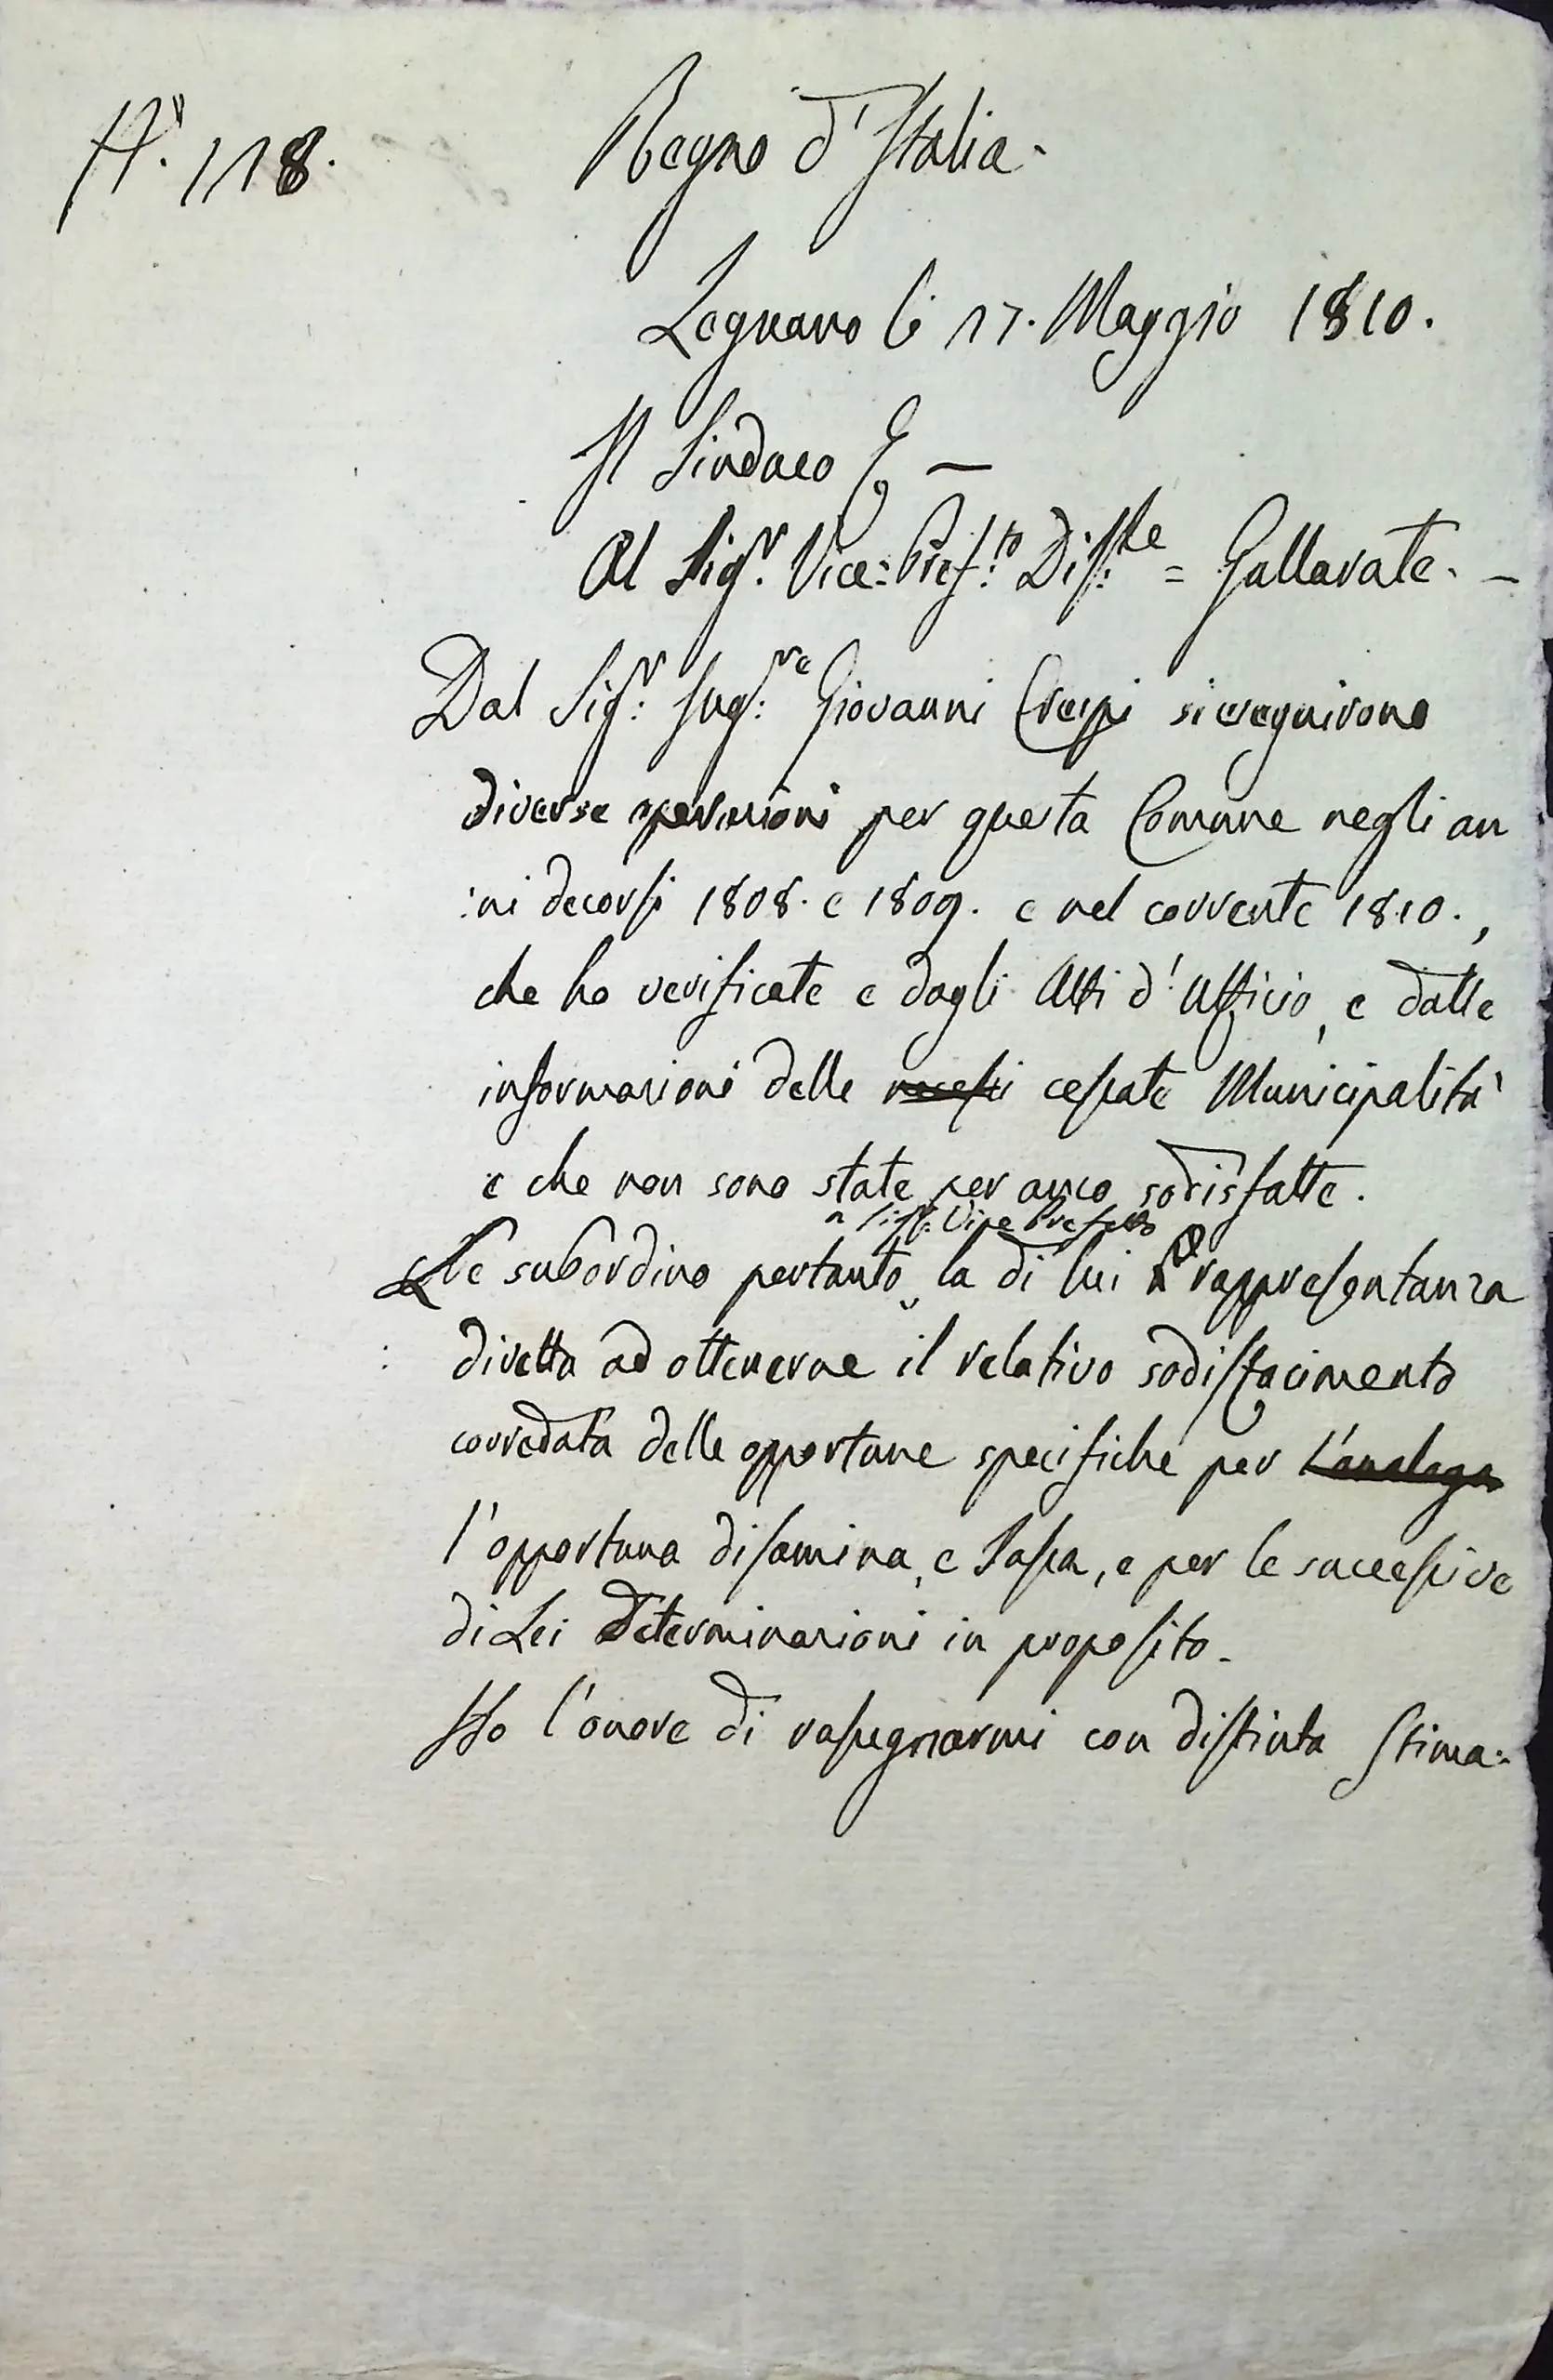 N.° 118.
Regno d'Italia.
Legnano li 17. Maggio 1810.
Il Sindaco
Al Sig.r Vice-Pref.to Dis.le = Gallarate. —
Dal Sig.r Ing.re Giovanni Crespi si eseguirono
diverse operazioni per questa Comune negli an
:ni decorsi 1808. e 1809. e nel corrente 1810.,
che ho verificate e dagli Atti d'Ufficio, e dalle
informazioni delle cessate Municipalità
e che non sono state per anco sodisfatte.
Sig.r Vice Prefetto
Le subordino pertanto la di lui rappresentanza
diretta ad ottenerne il relativo sodisfacimento
corredata delle opportune specifiche per l'analoga
l'opportuna disamina, e Tassa, e per le successive
di Lei determinazioni in proposito.
Ho l'onore di rassegnarmi con distinta stima.